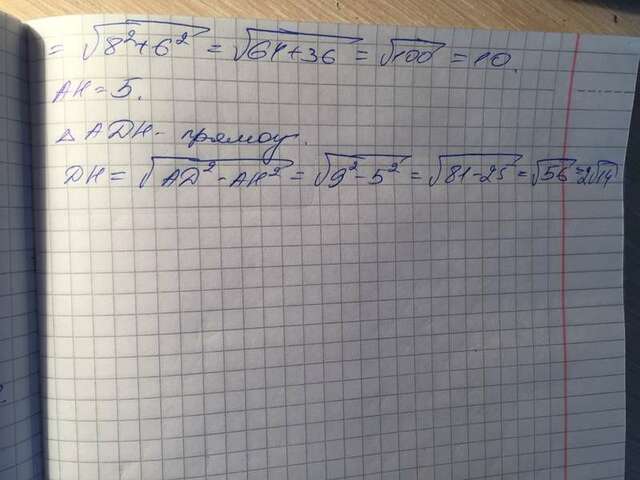 = √8²+6² = √64+36 = √100 = 10.
AH = 5.
△ADH - прямоу.
DH = √AD²-AH² = √9²-5² = √81-25 = √56 = 2√14